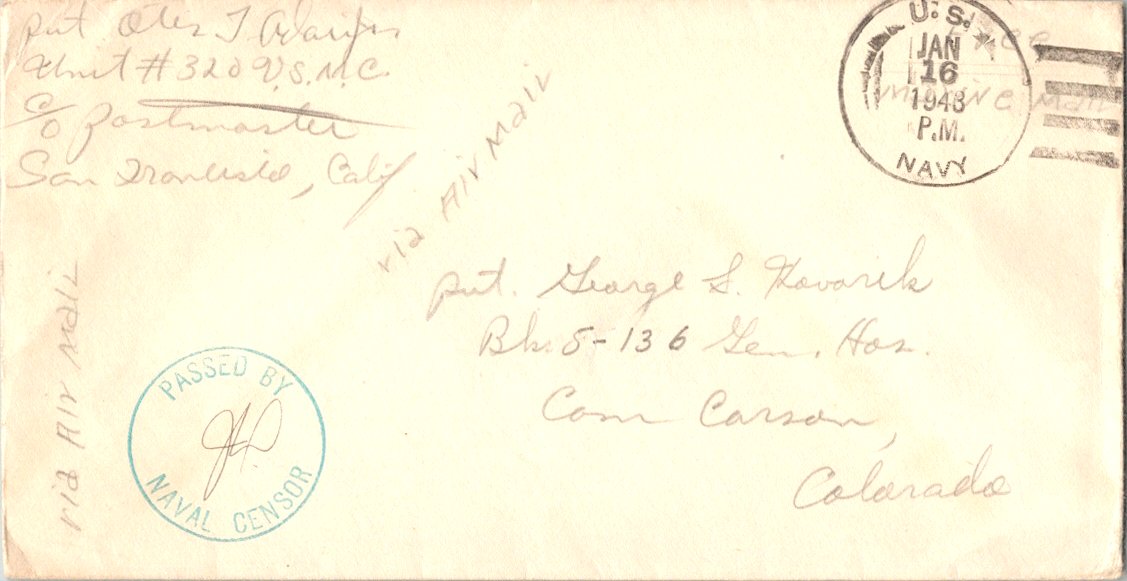 Pvt. Otis T
Unit #320 U.S.M.C.
c/o Postmaster
San Francisco, Calif
Free
Marine Mail
U.S.
JAN
16
1943
P.M.
NAVY
via Air Mail
via Air Mail
Pvt. George S. Kovarik
Bk. 5-136 Gen. Hos.
Cam Carson,
Colorado
PASSED BY
NAVAL CENSOR